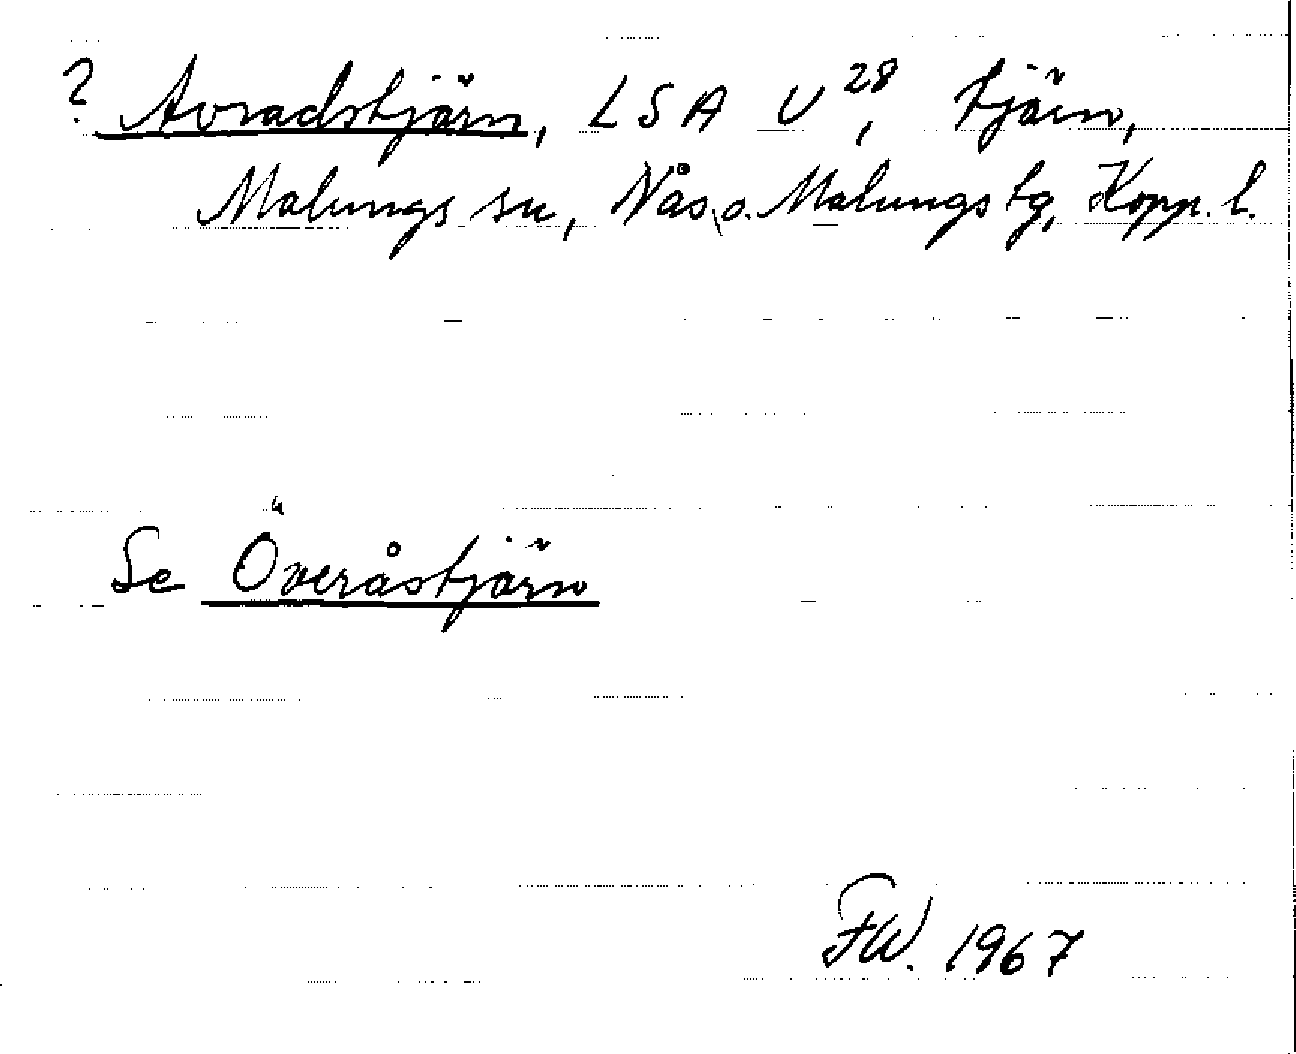 ? Avradstjärn, LSA U28, tjärn,
Malungs sn, Nås o. Malungs tg, Kopp. l.
Se Överåstjärn
FW. 1967